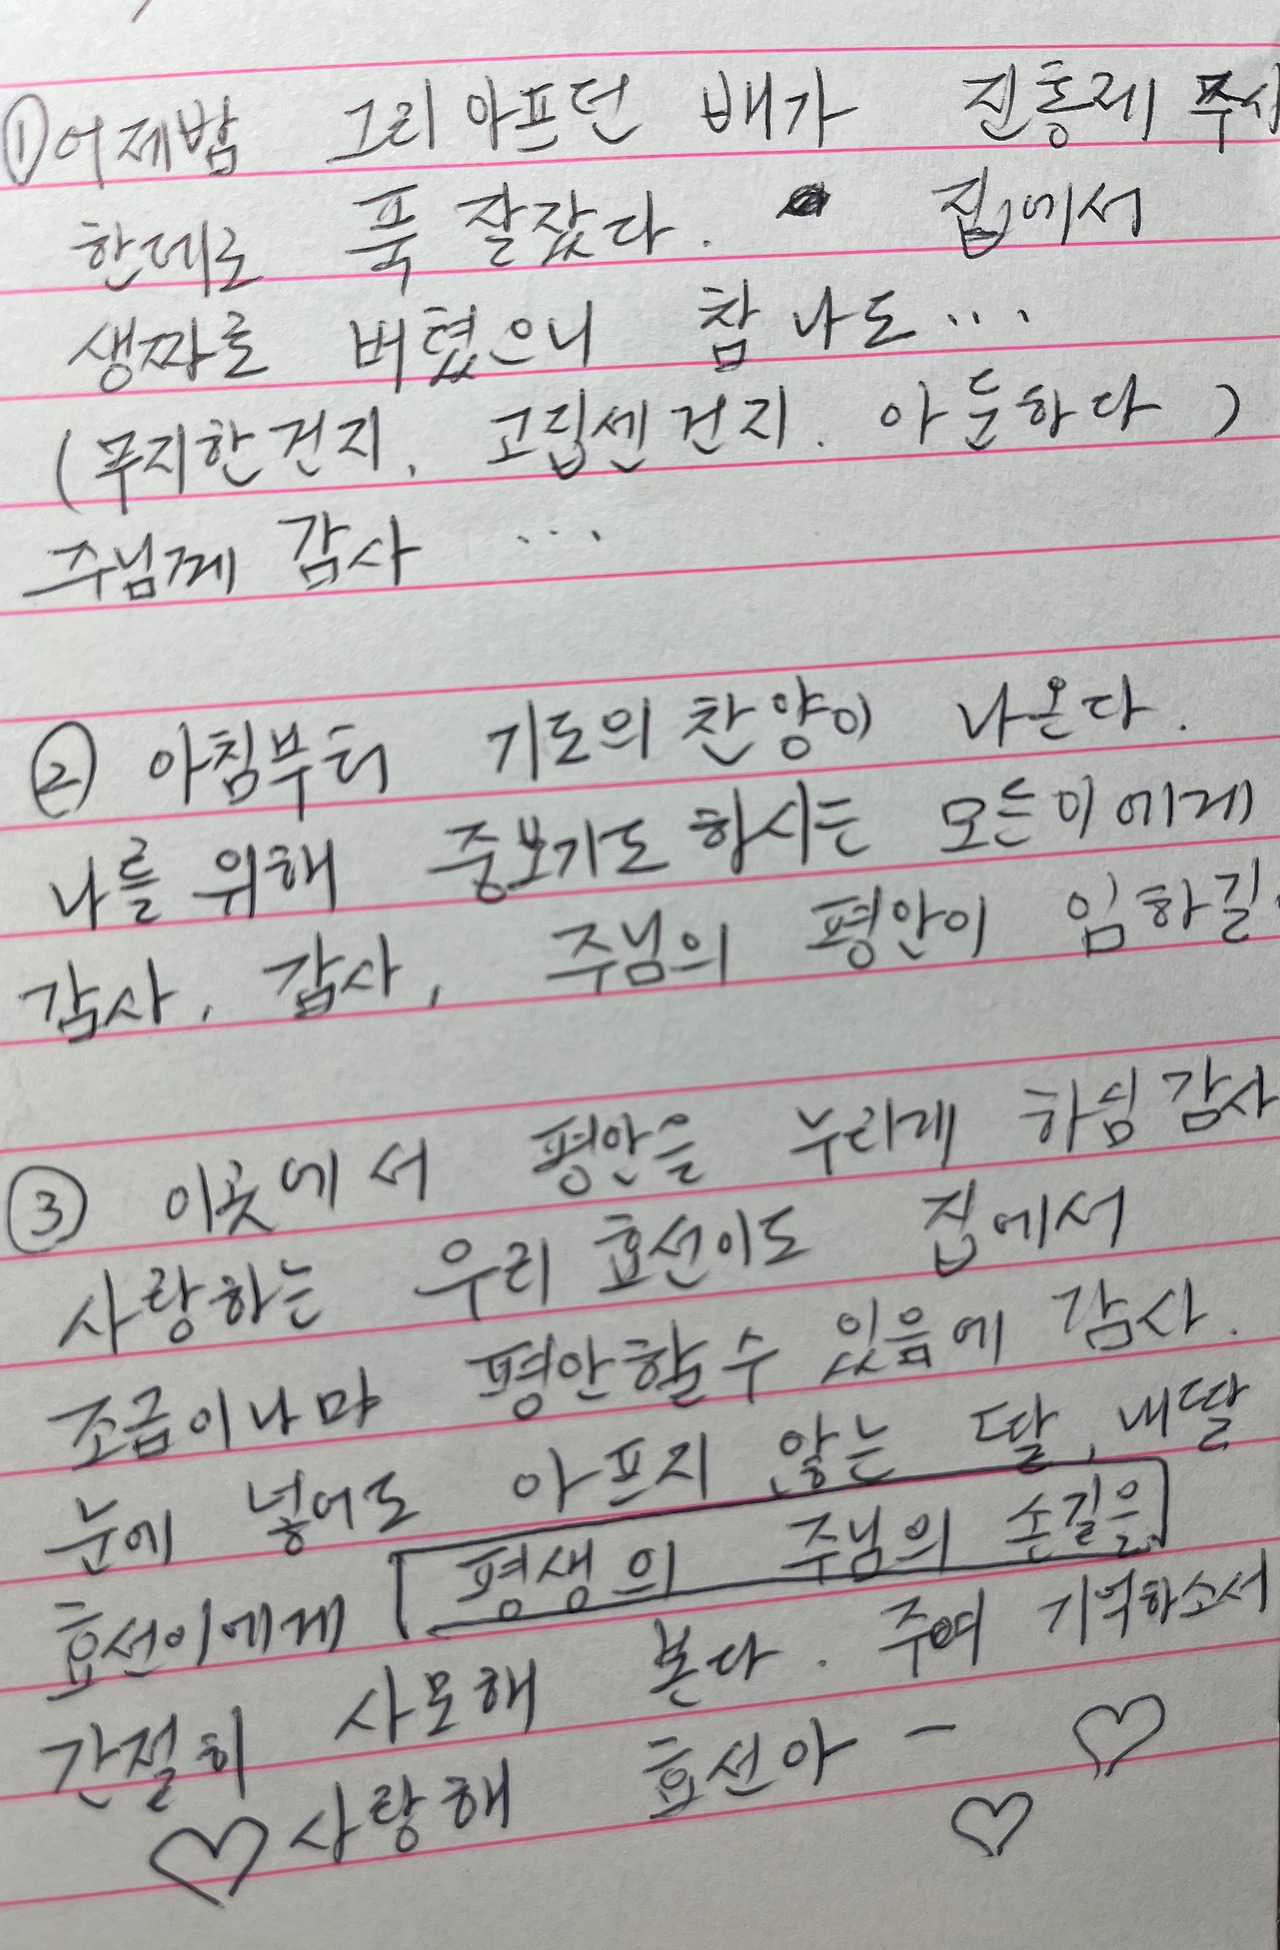 ① 어제밤 그리 아프던 배가 진통제 주사
한데로 푹 잘잤다. 집에서
생짜로 버텼으니 참 나도...
(무지한건지, 고집센건지. 아둔하다)
주님께 감사 ...
② 아침부터 기도의 찬양이 나온다.
나를 위해 중보기도 하시는 모든이에게
감사. 감사, 주님의 평안이 임하길.
③ 이곳에서 평안을 누리게 하심 감사
사랑하는 우리 효선이도 집에서
조금이나마 평안할수 있음에 감사.
눈에 넣어도 아프지 않는 딸, 내딸
효선이에게 평생의 주님의 손길을
간절히 사모해 본다. 주여 기억하소서
♡ 사랑해 효선아 - ♡
♡